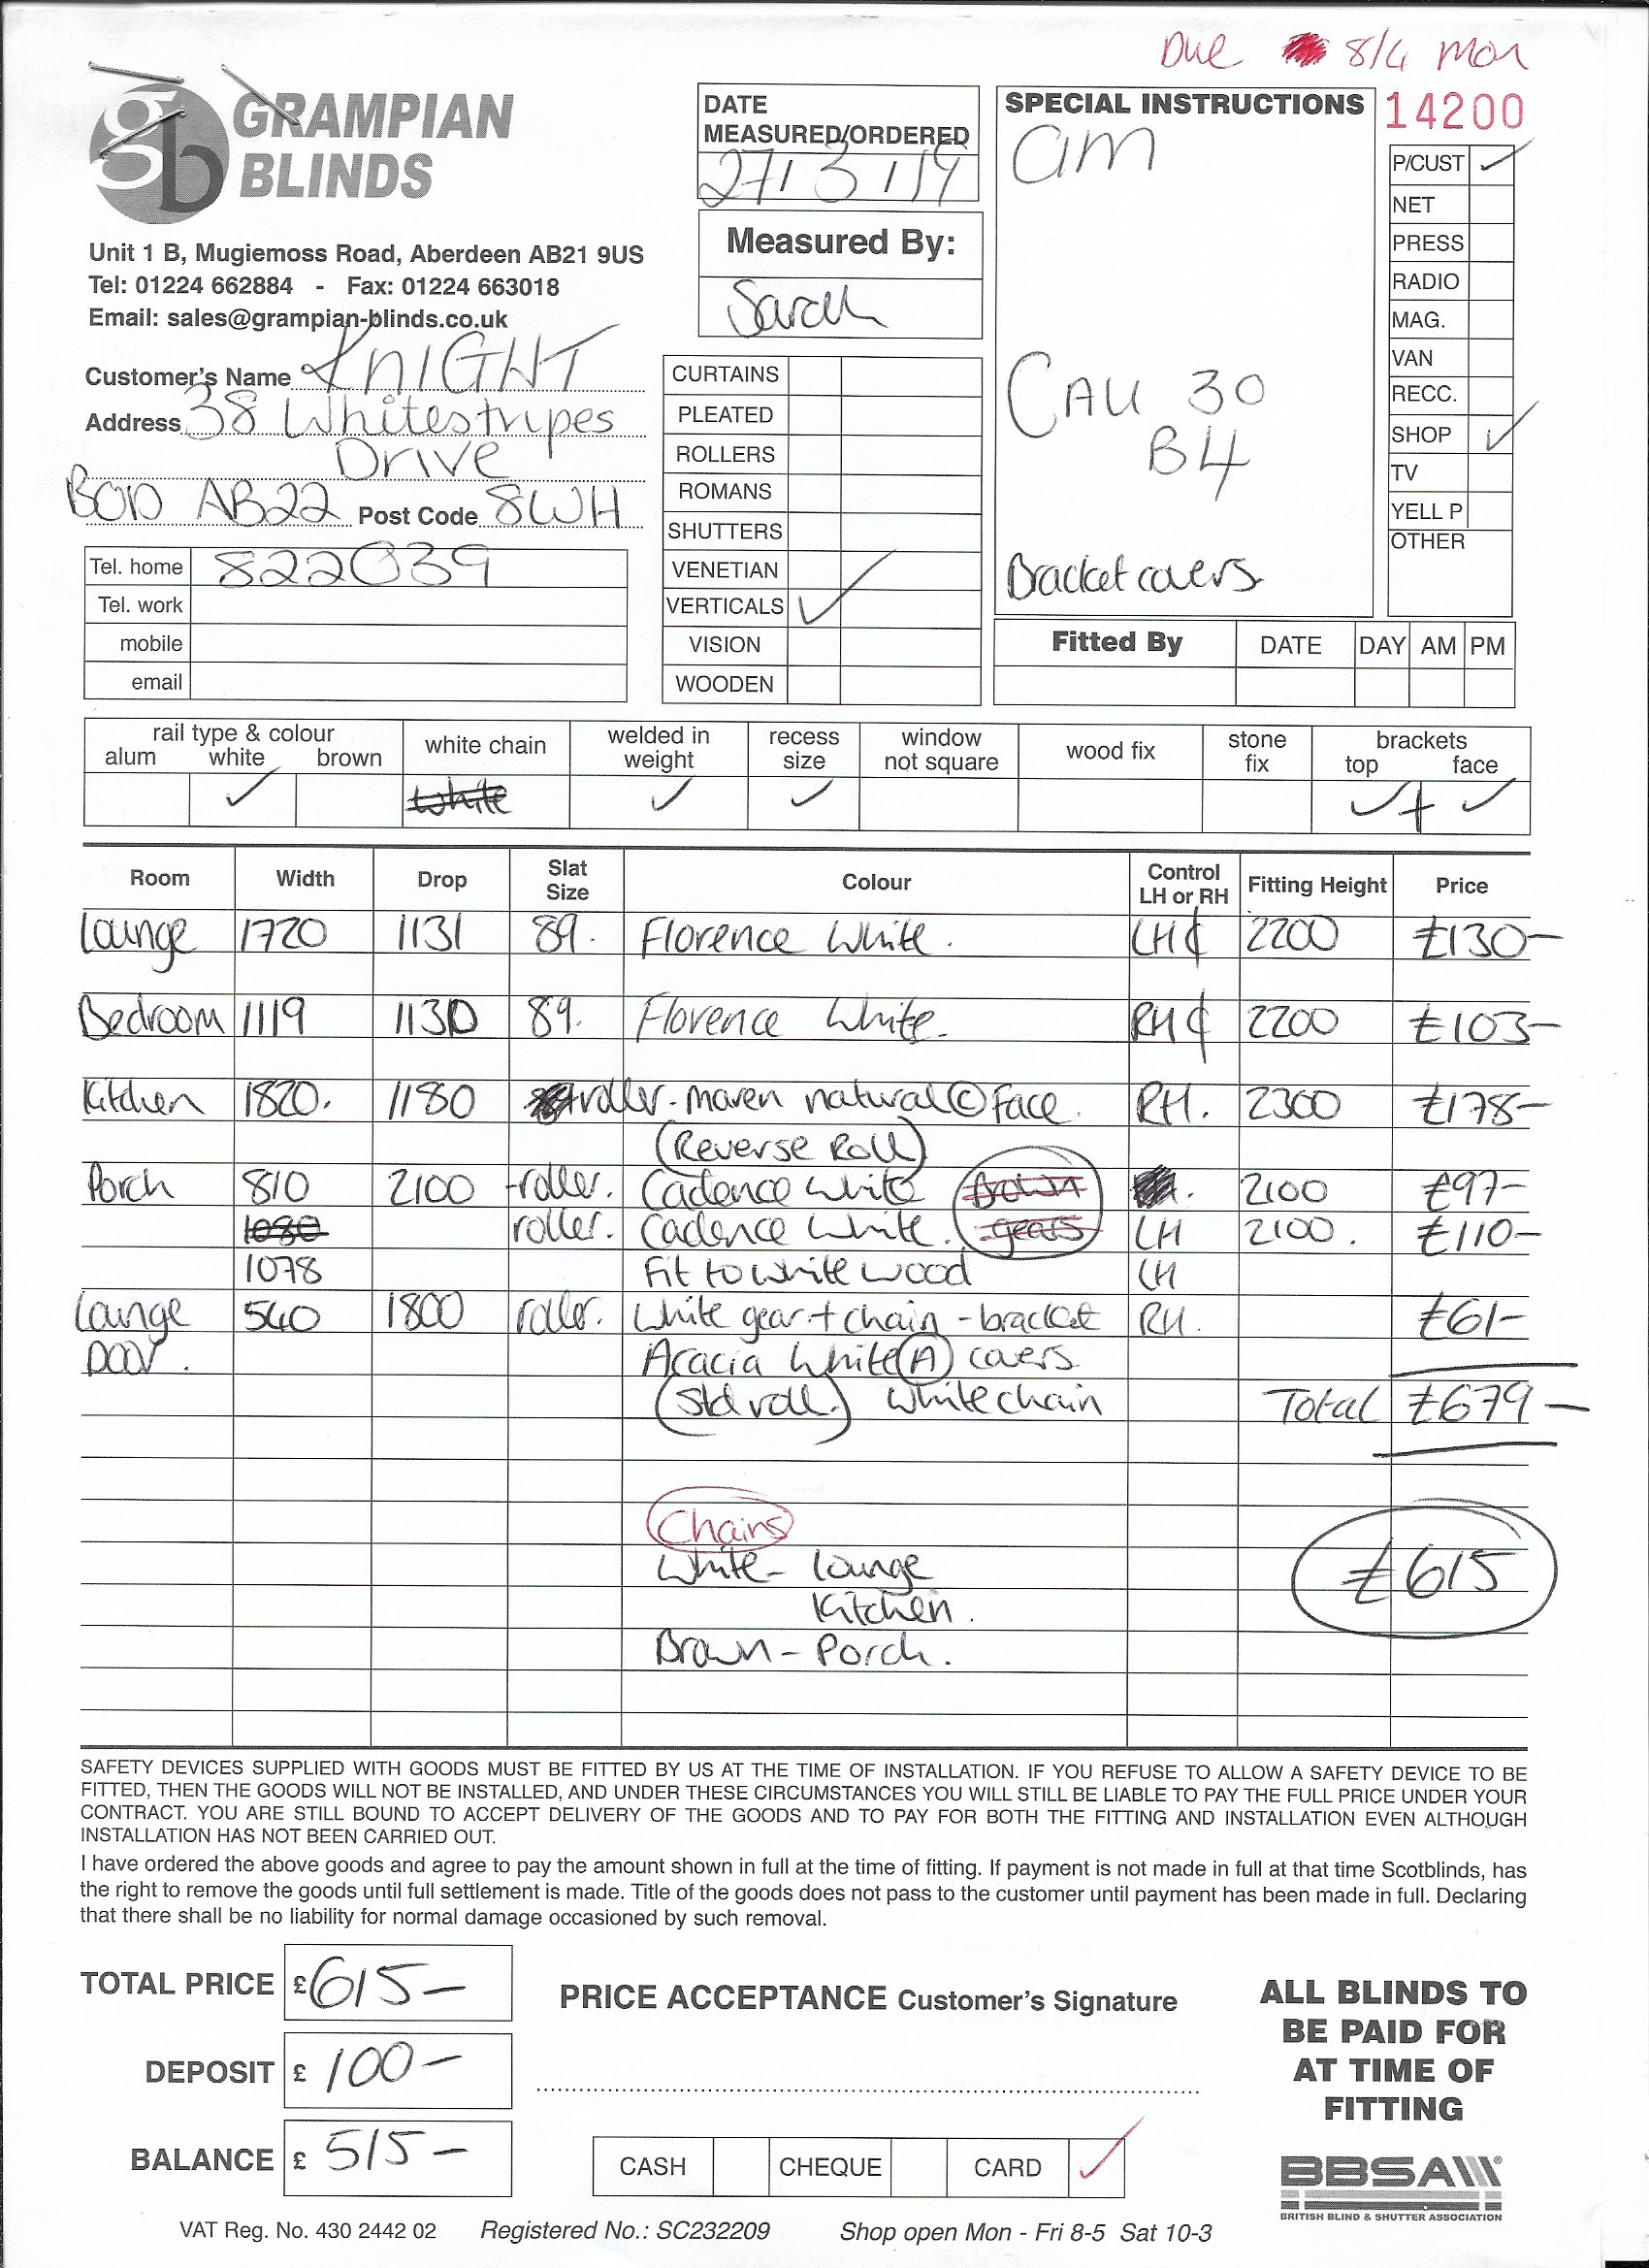 Due 8/4 Mon
GRAMPIAN
BLINDS
Unit 1 B, Mugiemoss Road, Aberdeen AB21 9US
Tel: 01224 662884 - Fax: 01224 663018
Email: sales@grampian-blinds.co.uk
Customer's Name KNIGHT
Address 38 Whitestripes
Drive
BOD AB22 Post Code 8WH
Tel. home 822039
Tel. work
mobile
email
DATE
MEASURED/ORDERED
27/3/19
Measured By:
Sarah
CURTAINS
PLEATED
ROLLERS
ROMANS
SHUTTERS
VENETIAN
VERTICALS ✓
VISION
WOODEN
SPECIAL INSTRUCTIONS
am
CALL 30
B4
Bracket covers
14200
P/CUST ✓
NET
PRESS
RADIO
MAG.
VAN
RECC.
SHOP ✓
TV
YELL P
OTHER
Fitted By DATE DAY AM PM
rail type & colour
alum white brown
white chain
welded in
weight
recess
size
window
not square
wood fix
stone
fix
brackets
top face
✓ white ✓ ✓ ✓ + ✓
Room Width Drop Slat Size Colour Control LH or RH Fitting Height Price
Lounge 1720 1131 89. Florence White. LH ¢ 2200 £130-
Bedroom 1119 1130 89. Florence White. RH ¢ 2200 £103-
Kitchen 1820. 1180 roller - maven natural © Face. RH. 2300 £178-
(Reverse Roll)
Porch 810 2100 -roller. Cadence White Brown 2100 £97-
1080 roller. Cadence White. gears LH 2100. £110-
1078 Fit to white wood LH
Lounge 540 1800 roller. White gear + chain - bracket RH. £61-
Door. Acacia White (A) covers
(Std roll.) White chain Total £679-
Chains
White - Lounge £615
Kitchen.
Brown - Porch.
SAFETY DEVICES SUPPLIED WITH GOODS MUST BE FITTED BY US AT THE TIME OF INSTALLATION. IF YOU REFUSE TO ALLOW A SAFETY DEVICE TO BE
FITTED, THEN THE GOODS WILL NOT BE INSTALLED, AND UNDER THESE CIRCUMSTANCES YOU WILL STILL BE LIABLE TO PAY THE FULL PRICE UNDER YOUR
CONTRACT. YOU ARE STILL BOUND TO ACCEPT DELIVERY OF THE GOODS AND TO PAY FOR BOTH THE FITTING AND INSTALLATION EVEN ALTHOUGH
INSTALLATION HAS NOT BEEN CARRIED OUT.
I have ordered the above goods and agree to pay the amount shown in full at the time of fitting. If payment is not made in full at that time Scotblinds, has
the right to remove the goods until full settlement is made. Title of the goods does not pass to the customer until payment has been made in full. Declaring
that there shall be no liability for normal damage occasioned by such removal.
TOTAL PRICE £615-
DEPOSIT £ 100-
BALANCE £ 515-
PRICE ACCEPTANCE Customer's Signature
CASH CHEQUE CARD ✓
ALL BLINDS TO
BE PAID FOR
AT TIME OF
FITTING
BBSA
BRITISH BLIND & SHUTTER ASSOCIATION
VAT Reg. No. 430 2442 02 Registered No.: SC232209 Shop open Mon - Fri 8-5 Sat 10-3